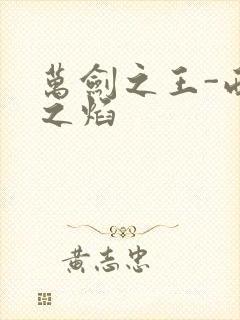 萬劍之王-
之焰
黃志忠